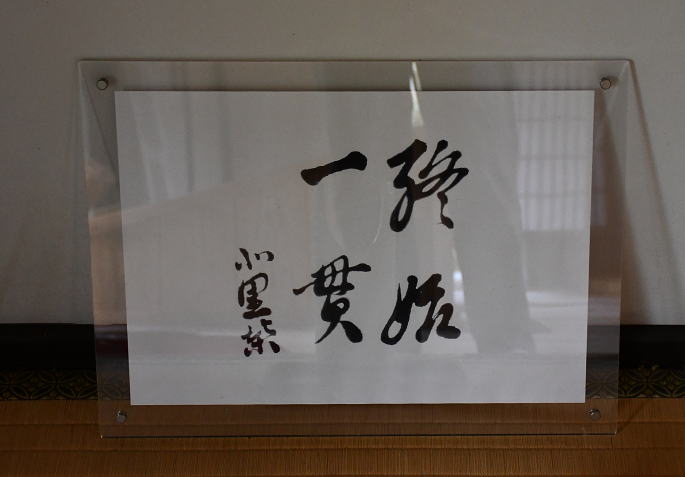 終始
一貫
小里紫